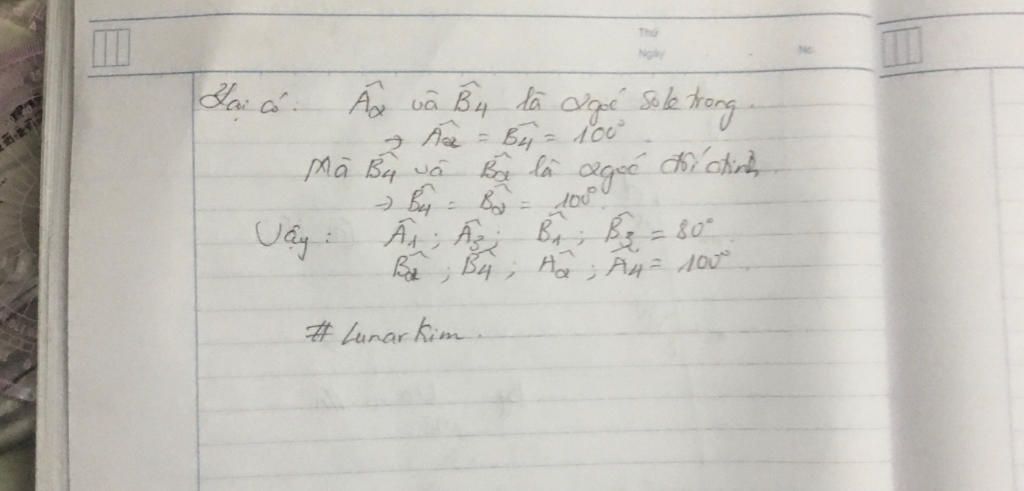 Thứ
Ngày No
Lại có: Â₂ và B̂₄ là 2 góc so le trong.
→ Â₂ = B̂₄ = 100°.
Mà B̂₄ và B̂₂ là 2 góc đối đỉnh.
→ B̂₄ = B̂₂ = 100°.
Vậy: Â₁ ; Â₃ ; B̂₁ ; B̂₃ = 80°
B̂₂ ; B̂₄ ; Â₂ ; Â₄ = 100°.
# Lunar Kim.